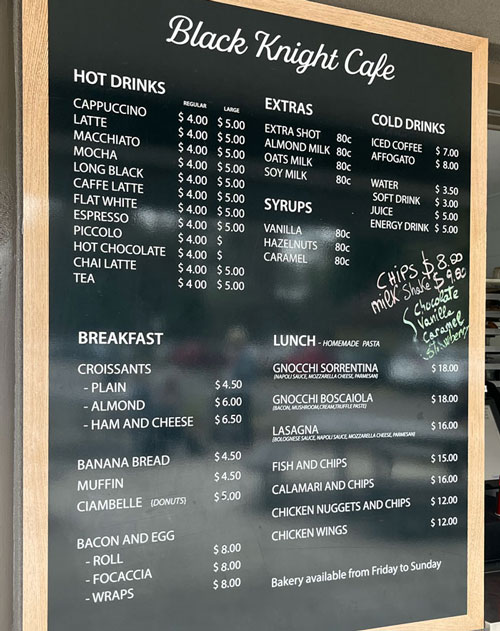 Black Knight Cafe
HOT DRINKS
REGULAR LARGE
CAPPUCCINO $ 4.00 $ 5.00
LATTE $ 4.00 $ 5.00
MACCHIATO $ 4.00 $ 5.00
MOCHA $ 4.00 $ 5.00
LONG BLACK $ 4.00 $ 5.00
CAFFE LATTE $ 4.00 $ 5.00
FLAT WHITE $ 4.00 $ 5.00
ESPRESSO $ 4.00 $ 5.00
PICCOLO $ 4.00 $
HOT CHOCOLATE $ 4.00 $
CHAI LATTE $ 4.00 $ 5.00
TEA $ 4.00 $ 5.00
EXTRAS
EXTRA SHOT 80c
ALMOND MILK 80c
OATS MILK 80c
SOY MILK 80c
SYRUPS
VANILLA 80c
HAZELNUTS 80c
CARAMEL 80c
COLD DRINKS
ICED COFFEE $ 7.00
AFFOGATO $ 8.00
WATER $ 3.50
SOFT DRINK $ 3.00
JUICE $ 5.00
ENERGY DRINK $ 5.00
CHIPS $ 8,50
milk Shake
Chocolate
Vanilla
Caramel
Strawberry
BREAKFAST
CROISSANTS
- PLAIN $ 4.50
- ALMOND $ 6.00
- HAM AND CHEESE $ 6.50
BANANA BREAD $ 4.50
MUFFIN $ 4.50
CIAMBELLE (DONUTS) $ 5.00
BACON AND EGG
- ROLL $ 8.00
- FOCACCIA $ 8.00
- WRAPS $ 8.00
LUNCH - HOMEMADE PASTA
GNOCCHI SORRENTINA $ 18.00
(NAPOLI SAUCE, MOZZARELLA CHEESE, PARMESAN)
GNOCCHI BOSCAIOLA $ 18.00
(BACON, MUSHROOM,CREAM,TRUFFLE PASTE)
LASAGNA $ 16.00
(BOLOGNESE SAUCE, NAPOLI SAUCE, MOZZARELLA CHEESE, PARMESAN)
FISH AND CHIPS $ 15.00
CALAMARI AND CHIPS $ 16.00
CHICKEN NUGGETS AND CHIPS $ 12.00
CHICKEN WINGS $ 12.00
Bakery available from Friday to Sunday